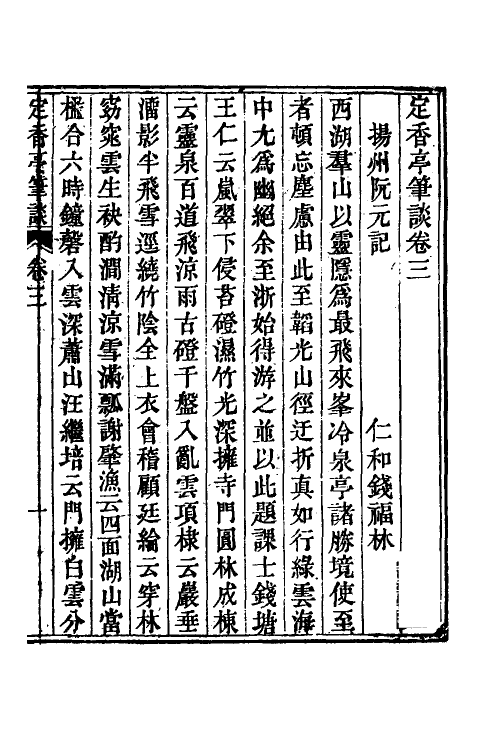 定香亭筆談卷三
揚州阮元記　仁和錢福林
西湖羣山以靈隱爲最飛來峯冷泉亭諸勝境使至
者頓忘塵慮由此至韜光山徑迂折真如行綠雲海
中尤爲幽絕余至浙始得游之並以此題課士錢塘
王仁云嵐翠下侵苔磴濕竹光深擁寺門圓林成棟
云靈泉百道飛涼雨古磴千盤入亂雲項棣云嚴垂
濇影半飛雪逕繞竹陰全上衣會稽顧廷綸云穿林
窈窕雲生袂酌澗清涼雪滿瓢謝肇漁云四面湖山當
檻合六時鐘磬入雲深蕭山汪繼培云門擁白雲分
定香亭筆談　卷三　一